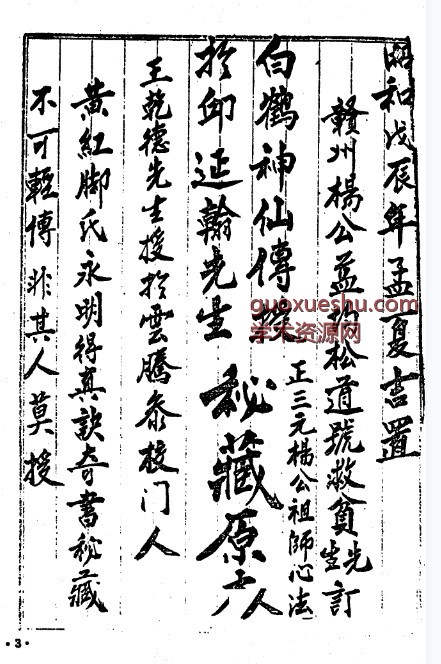 昭和戊辰年孟夏吉置
贛州楊公益松道號救貧先生訂
白鶴神仙傳
正三元楊公祖師心法
於邱延翰先生 秘藏原人
王乾德先生授於雲騰参校门人
黄紅脚氏永明得真訣奇書秘藏
不可輕傳非其人莫授
guoxueshu.com
学术资源网
·3·